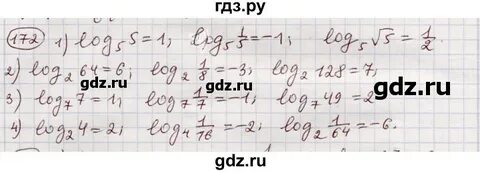 гдз.ру
172 1) log₅ 5 = 1; log₅ 1/5 = -1; log₅ √5 = 1/2.
2) log₂ 64 = 6; log₂ 1/8 = -3; log₂ 128 = 7;
3) log₇ 7 = 1; log₇ 1/7 = -1; log₇ 49 = 2
4) log₂ 4 = 2; log₄ 1/16 = -2; log₂ 1/64 = -6.
gdz.ru
gdz.ru
gdz.ru
gdz.ru